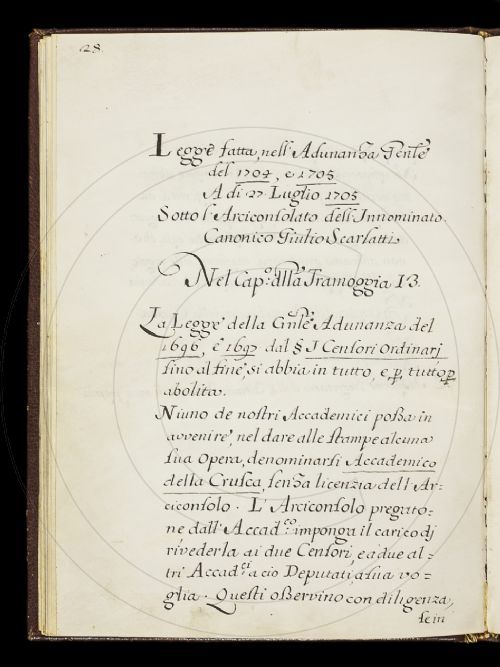 28.
Legge fatta nell'Adunanza Genle
del 1704, e 1705
A di 27 Luglio 1705
Sotto l'Arciconsolato dell'Innominato
Canonico Giulio Scarlatti
Nel Capo: dlla Tramoggia 13.
La Legge della Gnle Adunanza del
1696, e 1697 dal § I Censori Ordinarj
sino al fine, si abbia in tutto, e p tutto p
abolita.
Niuno de nostri Accademici possa in
avvenire, nel dare alle stampe alcuna
sua Opera, denominarsi Accademico
della Crusca, senza licenzia dell'Ar-
ciconsolo. L'Arciconsolo pregato-
ne dall'Accadco imponga il carico dj
rivederla ai due Censori, e a due al=
tri Accadci a ciò Deputati, a sua vo=
glia. Questi osservino con diligenza,
se in